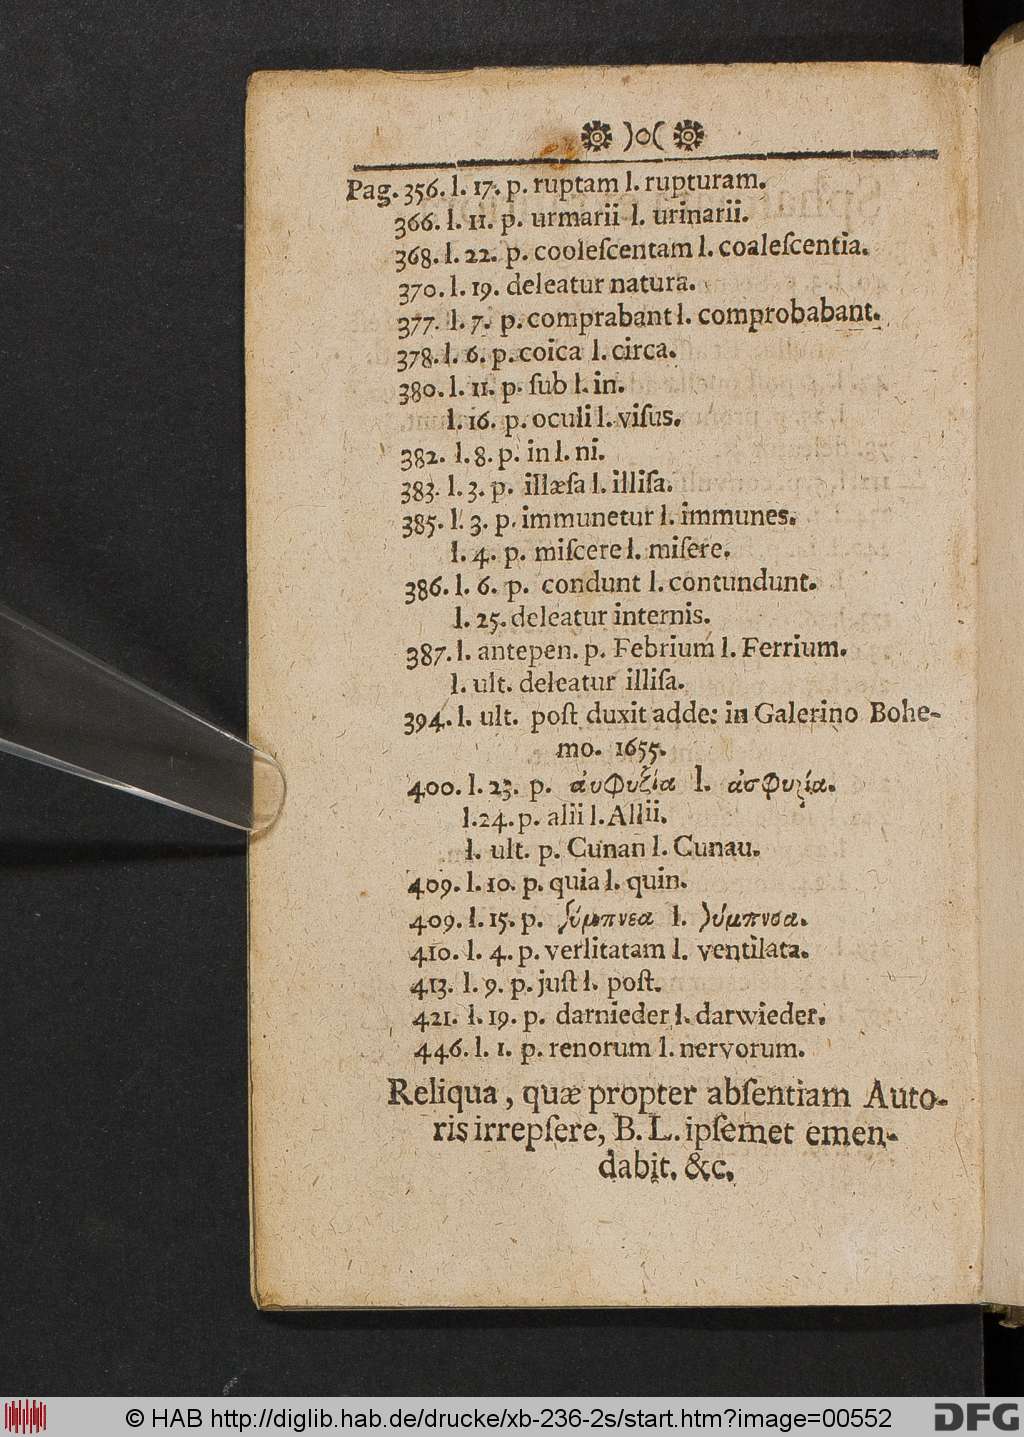 )o(
Pag. 356. l. 17. p. ruptam l. rupturam.
366. l. 11. p. urmarii l. urinarii.
368. l. 22. p. cooleſcentam l. coaleſcentia.
370. l. 19. deleatur natura.
377. l. 7. p. comprabant l. comprobabant.
378. l. 6. p. coica l. circa.
380. l. 11. p. ſub l. in.
l. 16. p. oculi l. viſus.
382. l. 8. p. in l. ni.
383. l. 3. p. illæſa l. illiſa.
385. l. 3. p. immunetur l. immunes.
l. 4. p. miſcere l. miſere.
386. l. 6. p. condunt l. contundunt.
l. 25. deleatur internis.
387. l. antepen. p. Febrium l. Ferrium.
l. ult. deleatur illiſa.
394. l. ult. poſt duxit adde: in Galerino Bohe-
mo. 1655.
400. l. 23. p. ἀυφυξία l. ἀσφυξία.
l. 24. p. alii l. Allii.
l. ult. p. Cunan l. Cunau.
409. l. 10. p. quia l. quin.
409. l. 15. p. l.
410. l. 4. p. verlitatam l. ventilata.
413. l. 9. p. juſt l. poſt.
421. l. 19. p. darnieder l. darwieder.
446. l. 1. p. renorum l. nervorum.
Reliqua, quæ propter abſentiam Auto-
ris irrepſere, B. L. ipſemet emen-
dabit. &c.
© HAB http://diglib.hab.de/drucke/xb-236-2s/start.htm?image=00552
DFG